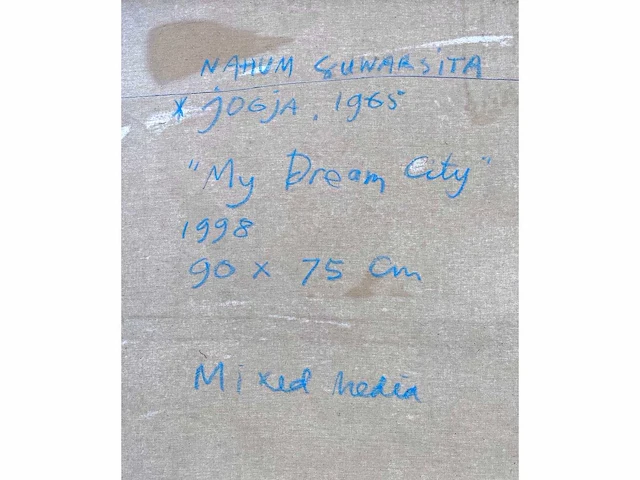 NAHUM GUWARSITA
* JOGJA, 1965
"My Dream City"
1998
90 x 75 cm
Mixed Media